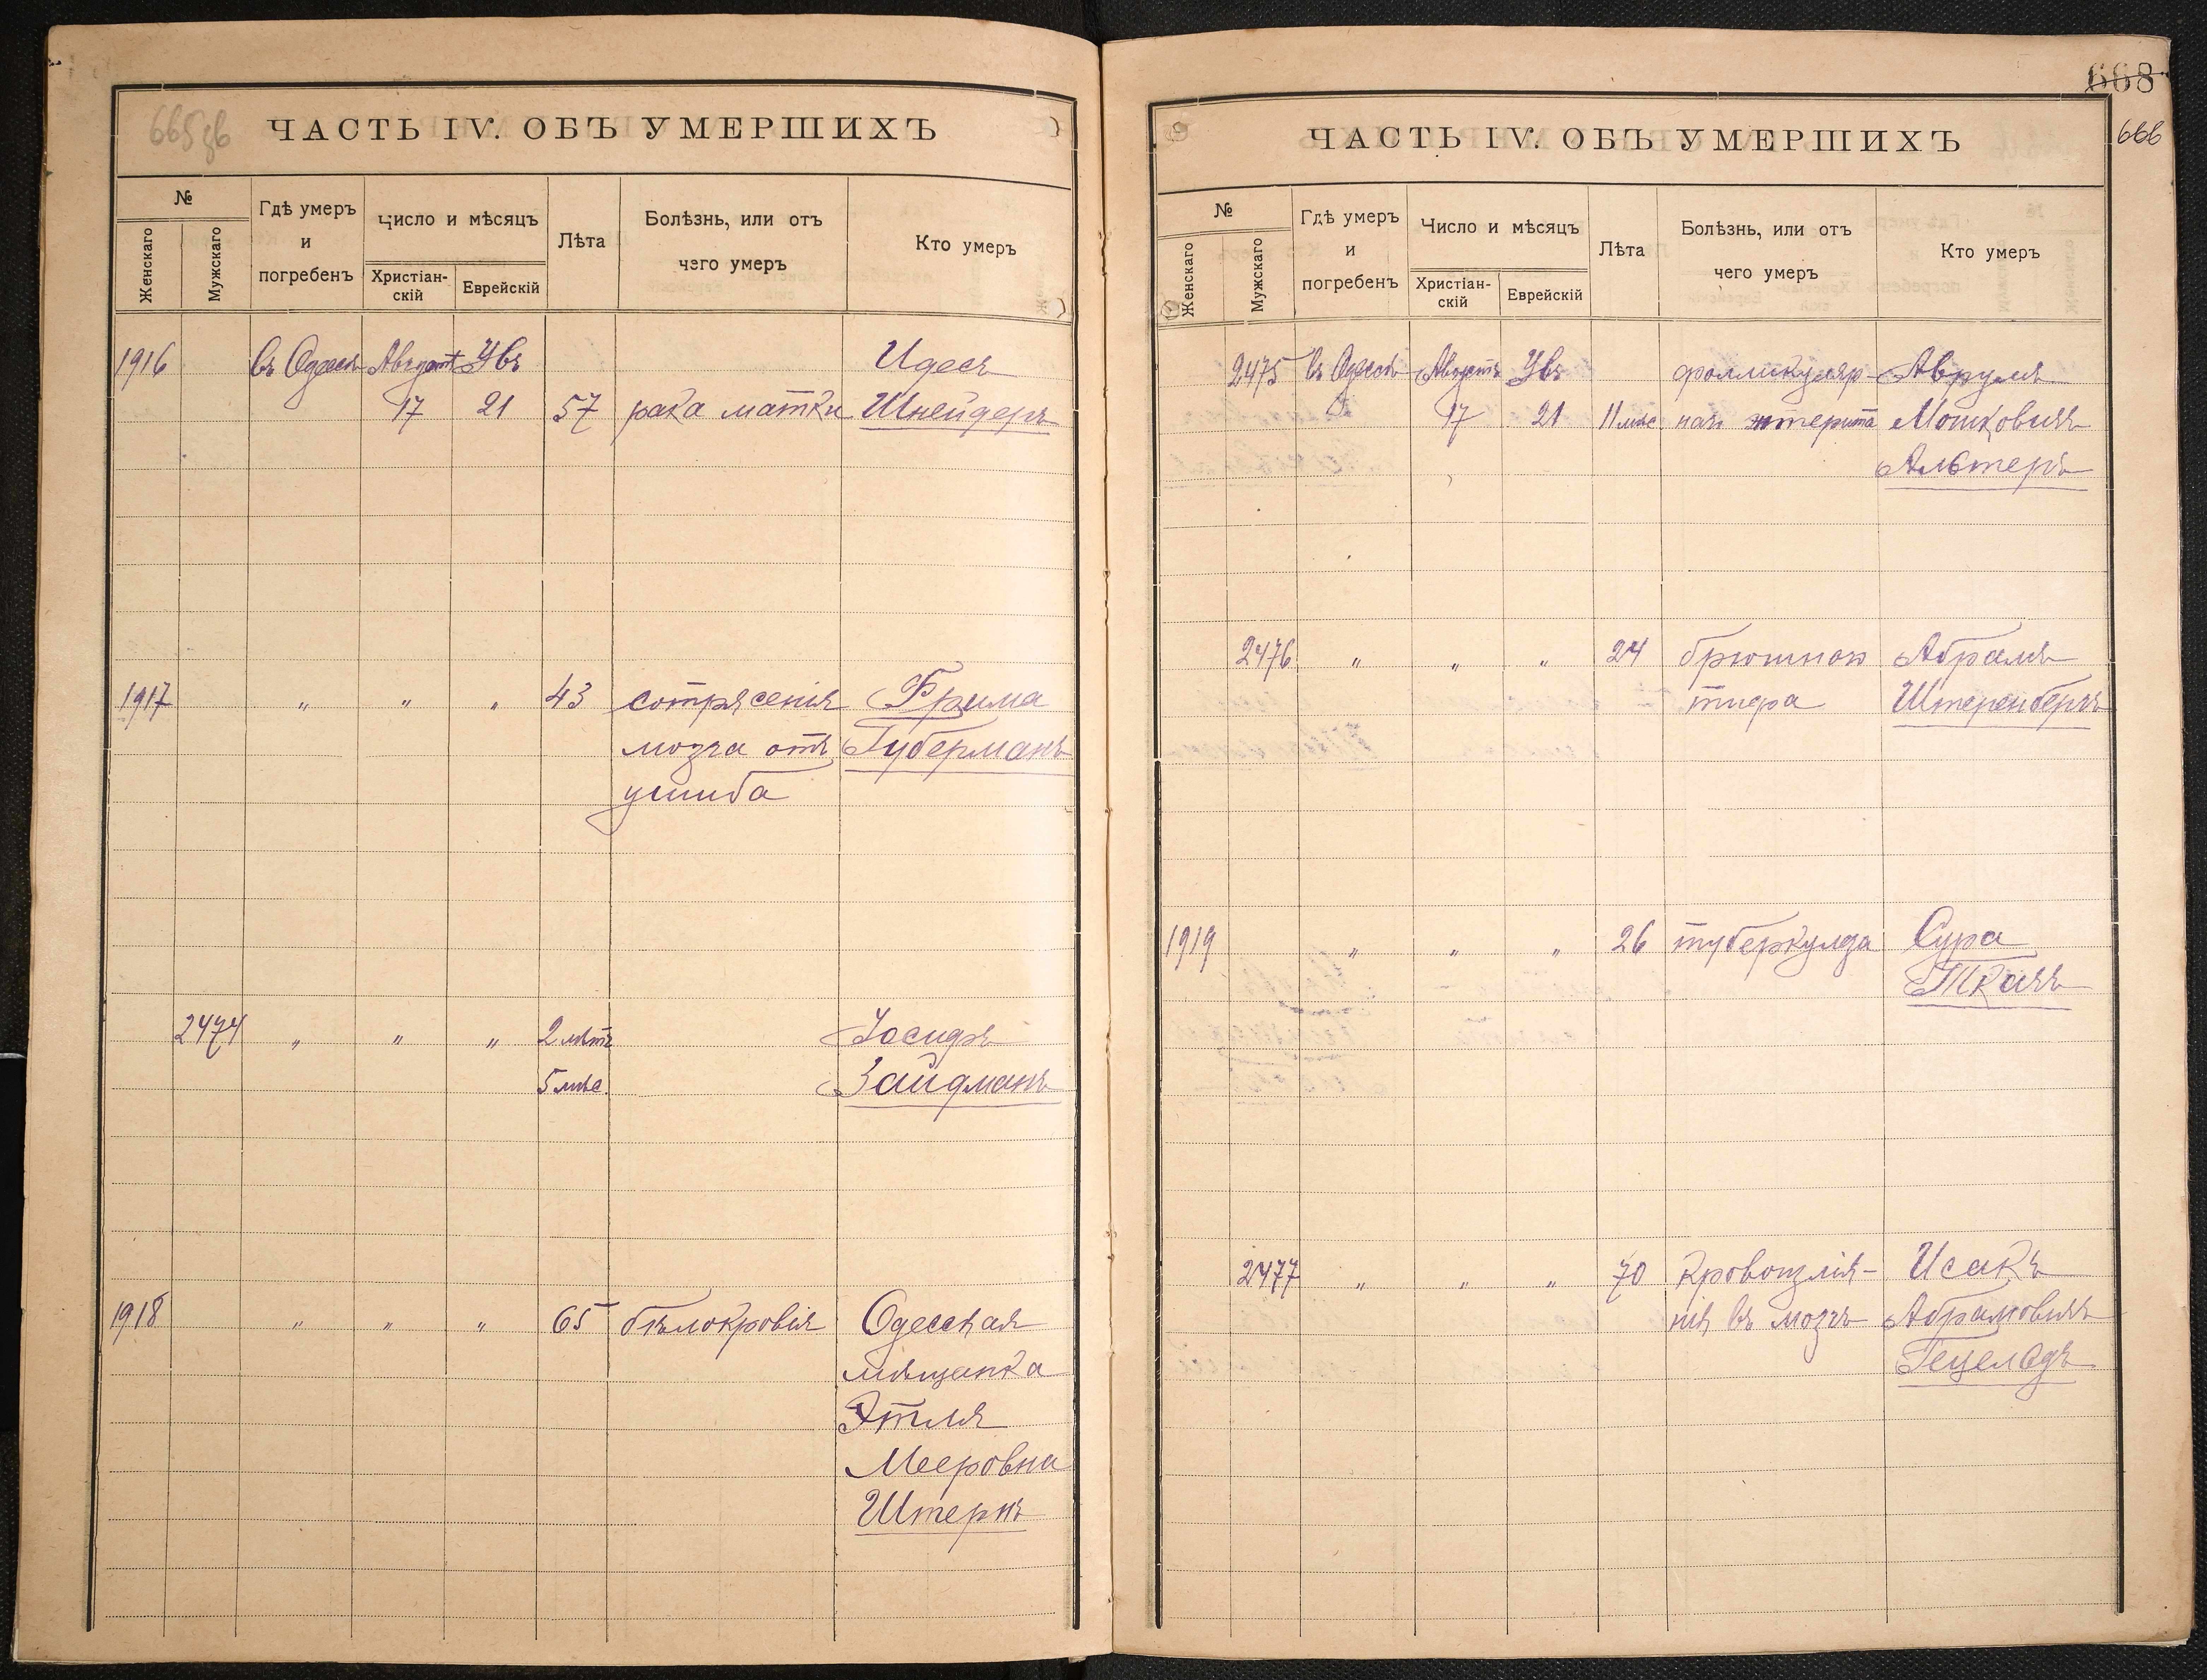 665зв
ЧАСТЬ IV. ОБЪ УМЕРШИХЪ
№
Женскаго
Мужскаго
Гдѣ умеръ
и
погребенъ
Число и мѣсяцъ
Христіан-
скій
Еврейскій
Лѣта
Болѣзнь, или отъ
чего умеръ
Кто умеръ
1916 въ Одессѣ Августъ Увъ Идесъ
17 21 57 рака матки Шнейдеръ
1917 " " " 43 сотрясенія Фрима
мозга отъ Губерманъ
ушиба
2474 " " " 2 лѣтъ Іосифъ
5 мѣс. Зайдманъ
1918 " " " 65 бѣлокровія Одесская
мѣщанка
Этля
Мееровна
Штернъ
668
666
ЧАСТЬ IV. ОБЪ УМЕРШИХЪ
№
Женскаго
Мужскаго
Гдѣ умеръ
и
погребенъ
Число и мѣсяцъ
Христіан-
скій
Еврейскій
Лѣта
Болѣзнь, или отъ
чего умеръ
Кто умеръ
2475 въ Одессѣ Августъ Увъ фолликуляр- Аврумъ
17 21 11 мѣс наго энтерита Мошковичъ
Альтеръ
2476 " " " 24 брюшного Абрамъ
тифа Штеренбергъ
1919 " " " 26 туберкулза Сура
Ткачъ
2477 " " " 70 кровоизлія- Исакъ
нія въ мозгъ Абрамовичъ
Гецельдъ